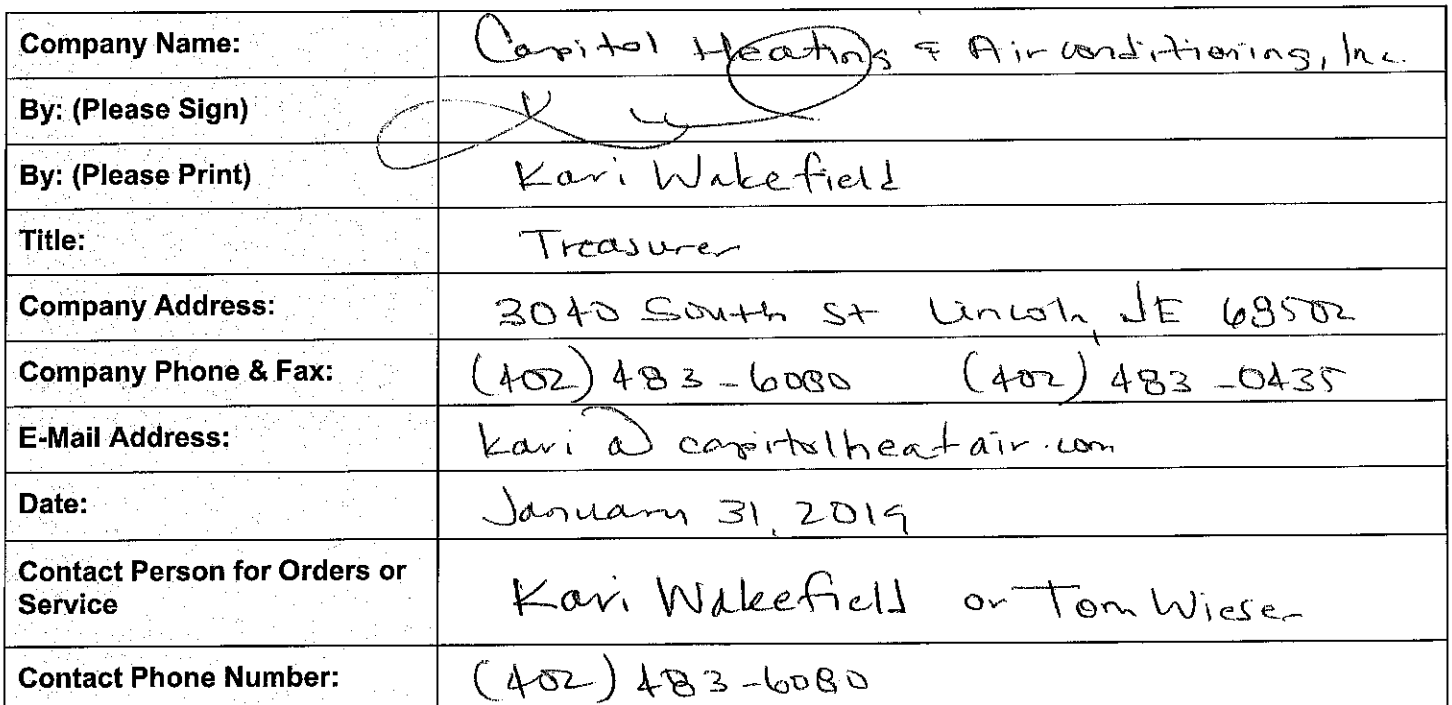 Company Name: Capitol Heating & Airconditioning, Inc.
By: (Please Sign)
By: (Please Print) Kari Wakefield
Title: Treasurer
Company Address: 3040 South St Lincoln, NE 68502
Company Phone & Fax: (402) 483-6080 (402) 483-0435
E-Mail Address: kari@capitolheatair.com
Date: January 31, 2019
Contact Person for Orders or
Service Kari Wakefield or Tom Wieser
Contact Phone Number: (402) 483-6080